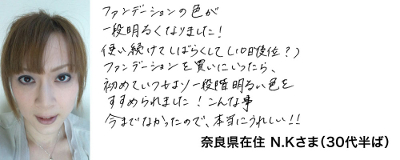 ファンデーションの色が
一段明るくなりました!
使い続けてしばらくして(10日後位?)
ファンデーションを買いにいったら、
初めていつもより一段階明るい色を
すすめられました!こんな事
今までなかったので、本当にうれしい!!
奈良県在住 N.Kさま(30代半ば)